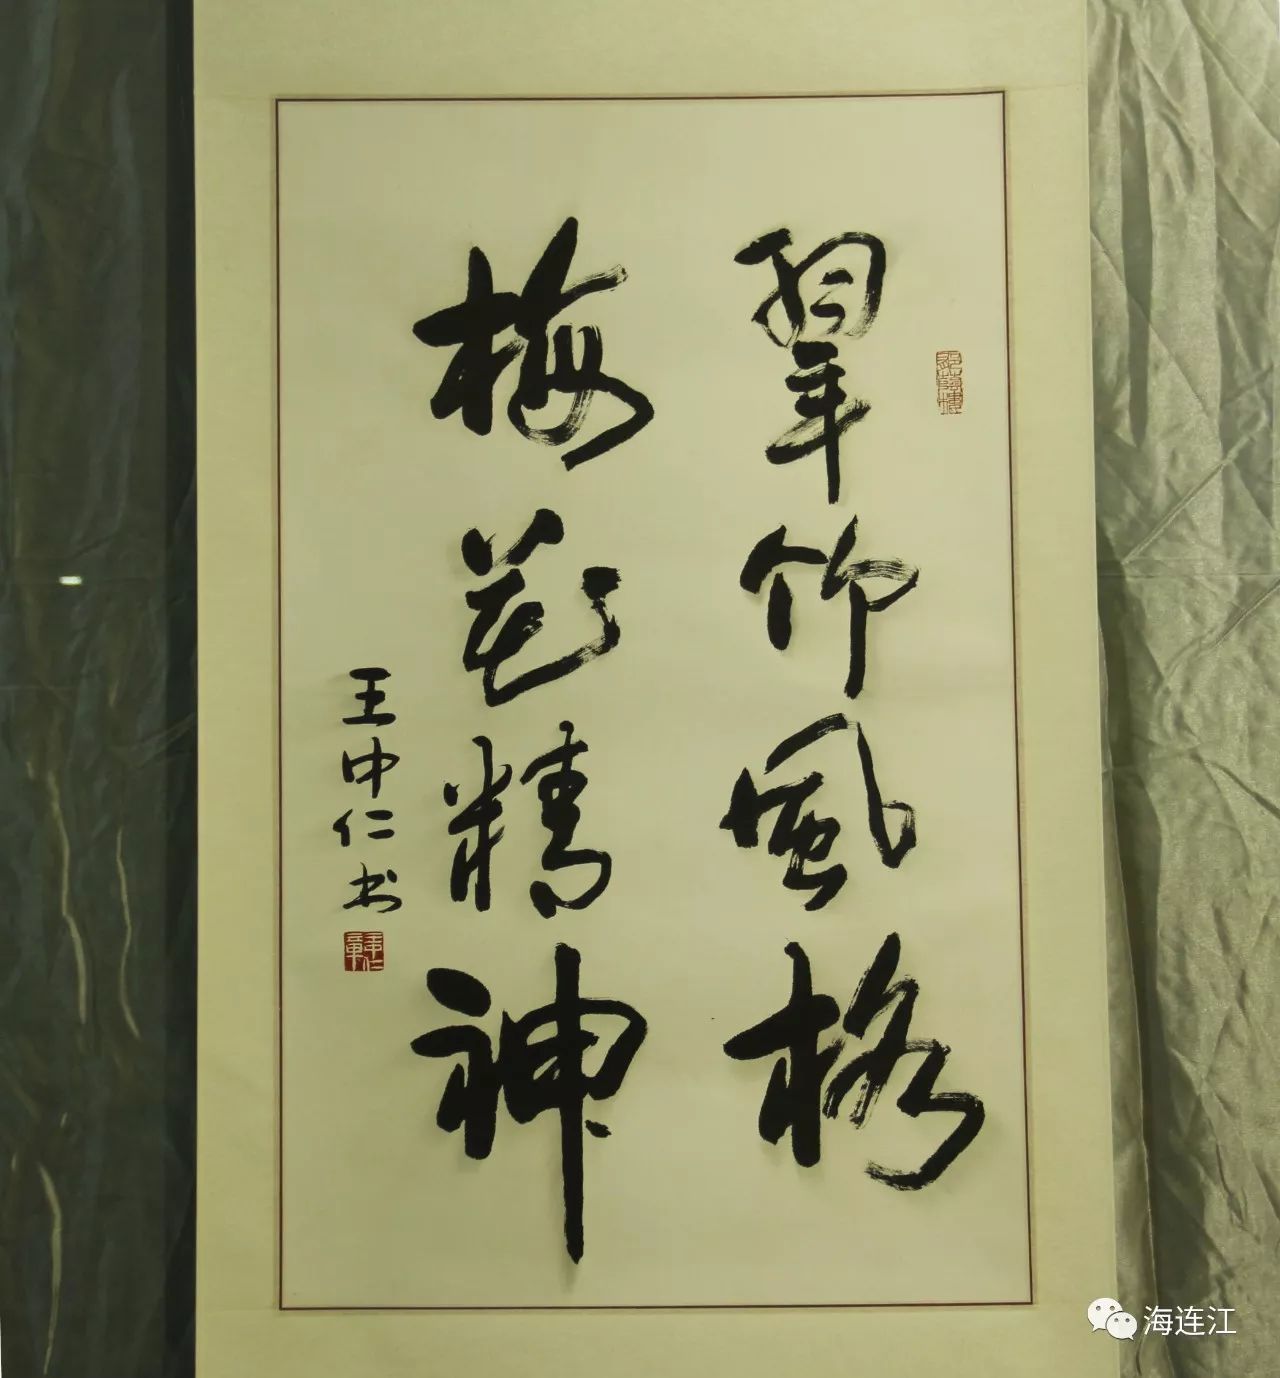 翠竹風格
梅花精神
王中仁书
海连江